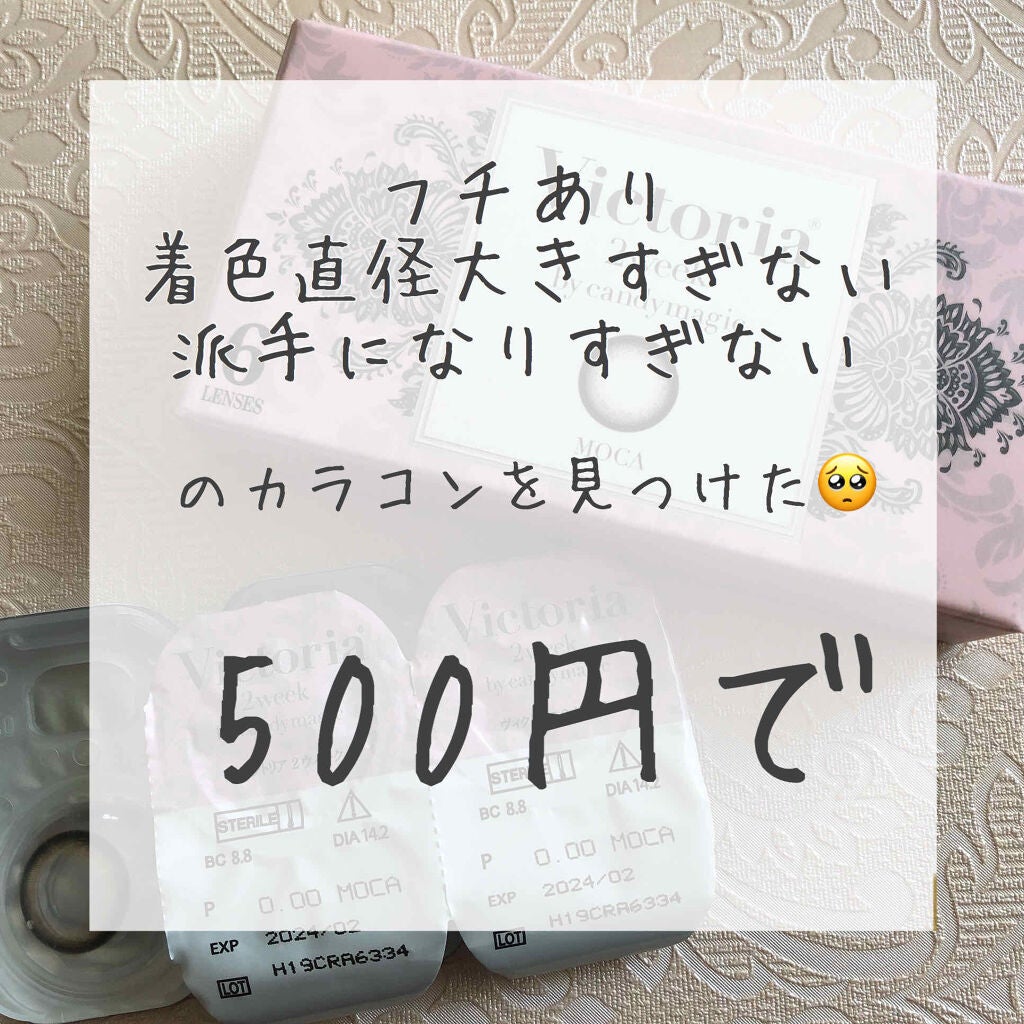 フチあり
着色直径大きすぎない
派手になりすぎない
のカラコンを見つけた🥺
500円で
Victoria®
2week
by candymagic
6
LENSES
MOCA
Victoria
2week
by candymagic
STERILE
BC 8.8
DIA 14.2
P 0.00 MOCA
EXP 2024/02
LOT H19CRA6334
Victoria
2week
candymagic
STERILE
BC 8.8
DIA 14.2
P 0.00 MOCA
EXP 2024/02
LOT H19CRA6334